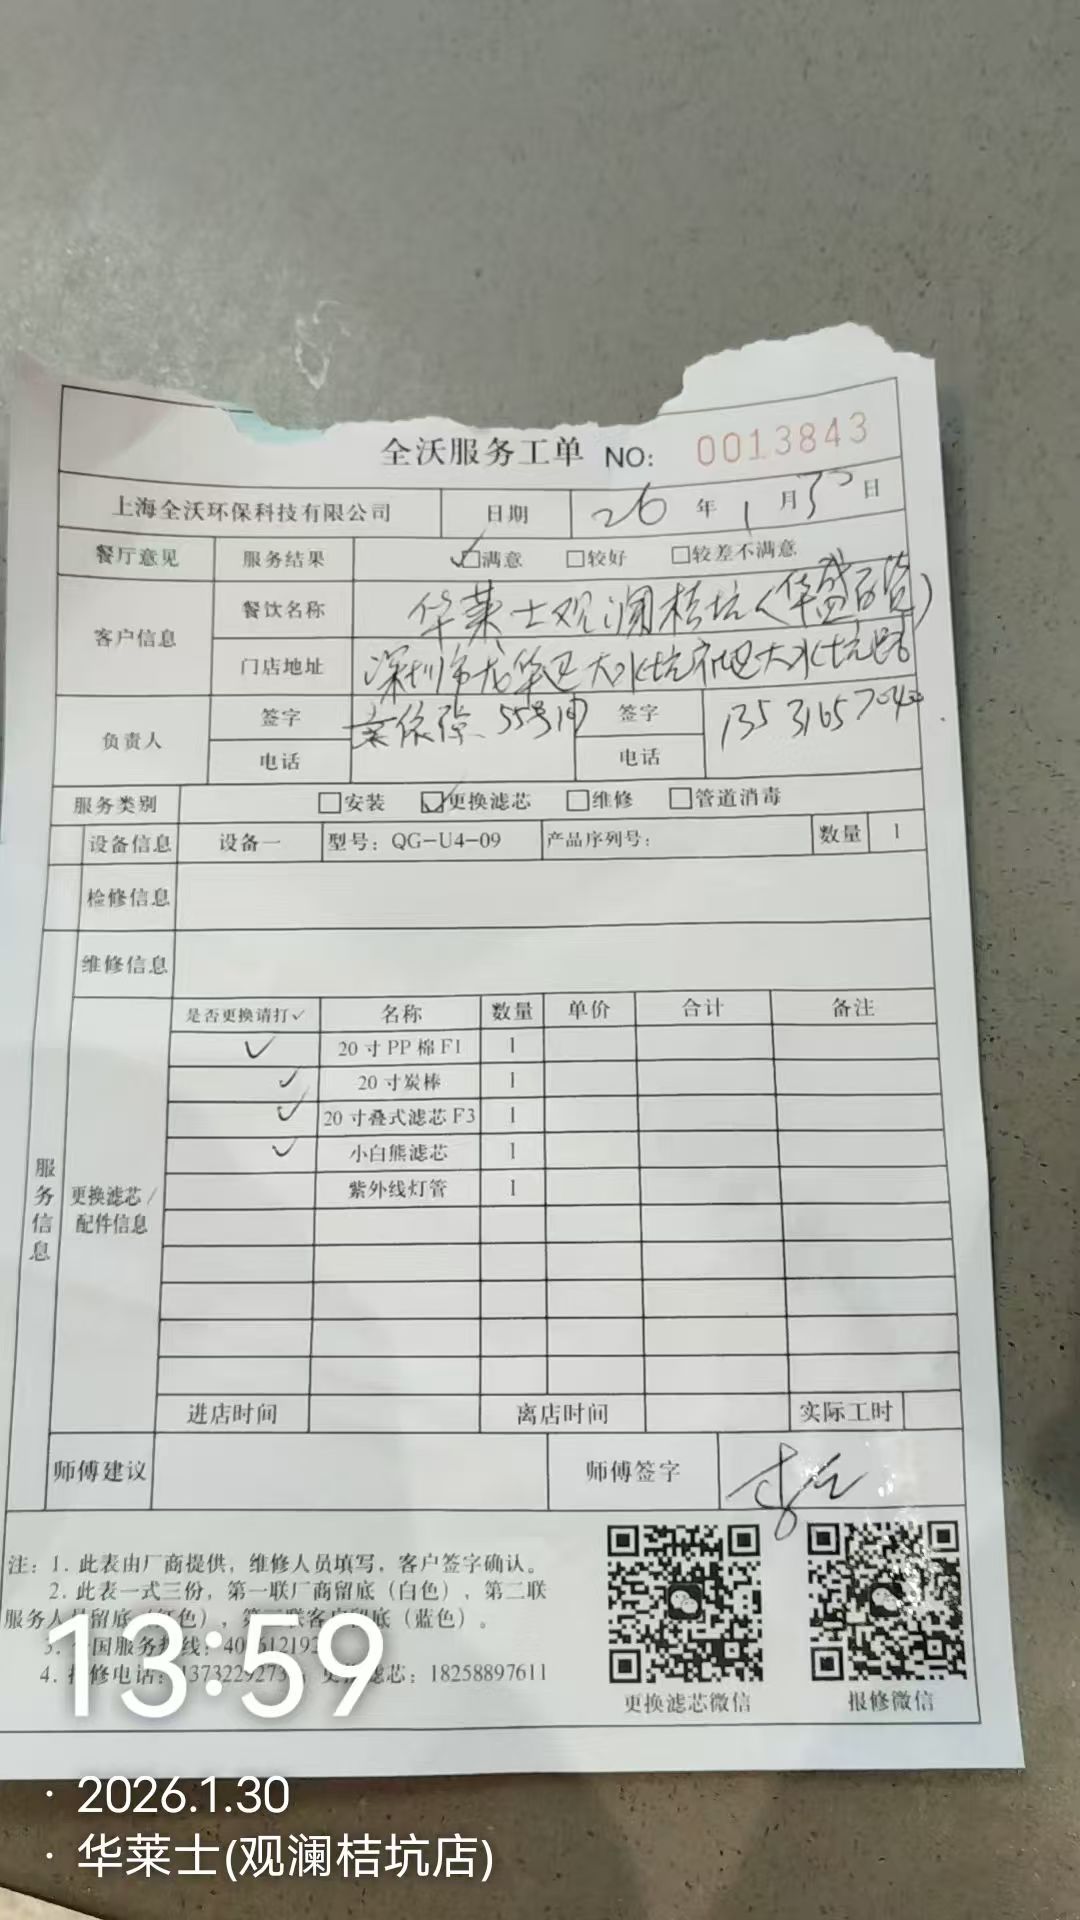 全沃服务工单 NO: 0013843
上海全沃环保科技有限公司 日期 26 年 1 月 30 日
餐厅意见 服务结果 ☑满意 □较好 □较差不满意
客户信息 餐饮名称 华莱士观澜桔坑(华盛百货)
门店地址 深圳市龙华区大水坑社区大水坑路
55号
负责人 签字 签字
电话 电话
服务类别 □安装 ☑更换滤芯 □维修 □管道消毒
设备信息 设备一 型号：QG-U4-09 产品序列号： 数量 1
检修信息
维修信息
服务信息
更换滤芯/
配件信息
是否更换请打✓ 名称 数量 单价 合计 备注
✓ 20寸PP棉F1 1
✓ 20寸炭棒 1
✓ 20寸叠式滤芯F3 1
✓ 小白熊滤芯 1
紫外线灯管 1
进店时间 离店时间 实际工时
师傅建议 师傅签字
注：1. 此表由厂商提供，维修人员填写，客户签字确认。
2. 此表一式三份，第一联厂商留底（白色），第二联
服务人员留底（红色），第三联客户留底（蓝色）。
3. 全国服务热线：
4. 报修电话： 更换滤芯：18258897611
更换滤芯微信 报修微信
13:59
· 2026.1.30
· 华莱士(观澜桔坑店)